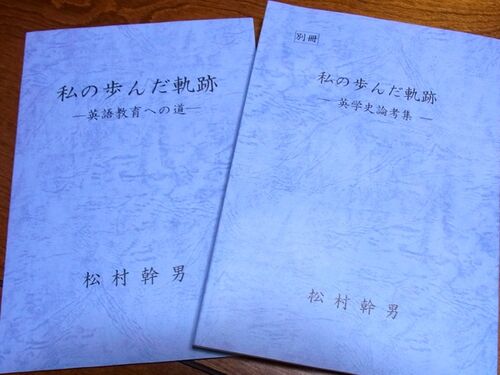 私の歩んだ軌跡
―英語教育への道―
松村幹男
別冊
私の歩んだ軌跡
― 英学史論考集 ―
松村幹男